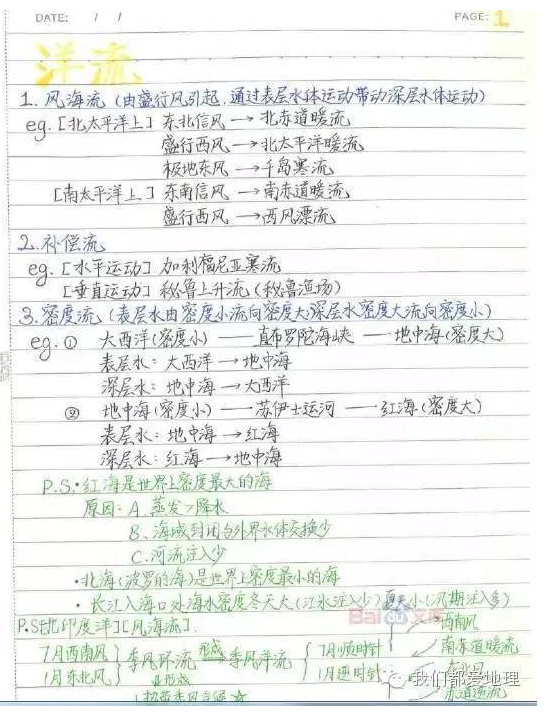 DATE: / /
PAGE: 1
洋流
1. 风海流 (由盛行风引起,通过表层水体运动带动深层水体运动)
eg. [北太平洋上] 东北信风 → 北赤道暖流
盛行西风 → 北太平洋暖流
极地东风 → 千岛寒流
[南太平洋上] 东南信风 → 南赤道暖流
盛行西风 → 西风漂流
2. 补偿流
eg. [水平运动] 加利福尼亚寒流
[垂直运动] 秘鲁上升流 (秘鲁渔场)
3. 密度流 (表层水由密度小流向密度大深层水密度大流向密度小)
eg. ① 大西洋(密度小) — 直布罗陀海峡 — 地中海(密度大)
表层水: 大西洋 → 地中海
深层水: 地中海 → 大西洋
② 地中海(密度小) — 苏伊士运河 — 红海(密度大)
表层水: 地中海 → 红海
深层水: 红海 → 地中海
P.S.·红海是世界上密度最大的海
原因: A. 蒸发>降水
B. 海域封闭与外界水体交换少
C. 河流注入少
·北海(波罗的海)是世界上密度最小的海
·长江入海口外海水密度冬天大(江水注入少)夏天小(汛期注入多)
P.S[北印度洋][风海流].
西南风
7月西南风 季风环流 形成→ 季风洋流 7月顺时针 南赤道暖流
1月东北风 ↓形成 1月逆时针 东北风
热带季风气候 ☆ 赤道逆流
Bai 文库
我们都爱地理